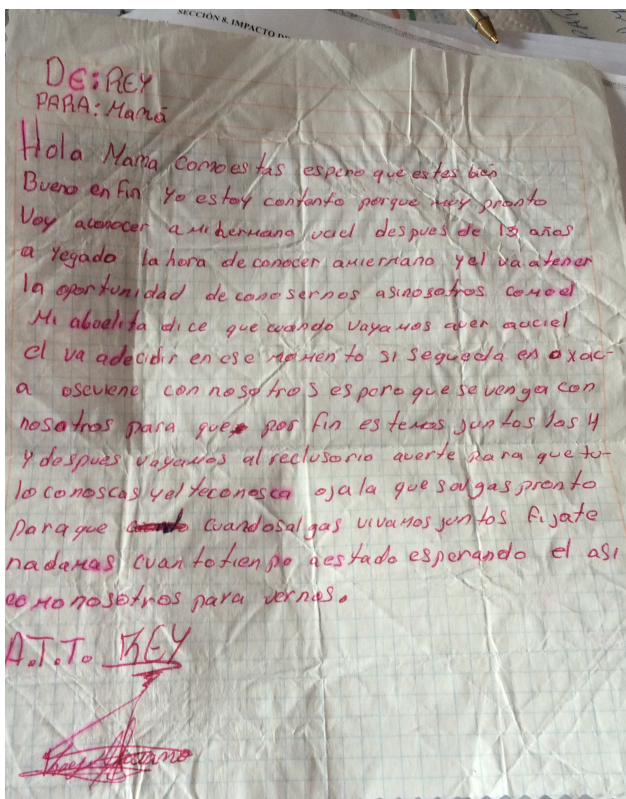 SECCIÓN 8. IMPACTO
DE: REY
PARA: Mamá
Hola Mama como estas espero que estes bien
Bueno en fin yo estoy contento porque muy pronto
Voy aconocer a mi hermano uciel despues de 13 años
a yegado la hora de conocer amiermano yel va atener
la oportunidad de conosernos asinosotros como el
Mi abuelita dice que cuando vayamos aver auciel
el va adecidir en ese momento si sequeda en oxac-
a oseviene con nosotros espero que se venga con
nosotros para que por fin estemos juntos los 4
y despues vayamos al reclusorio averte para que tu
lo conoscas yel teconosca ojala que salgas pronto
para que cuandosalgas vivamos juntos fijate
nadamas cuanto tienpo aestado esperando el asi
como nosotros para vernos.
A.T.T. REY